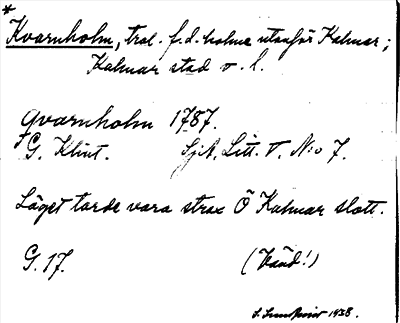 *
Kvarnholm, trol. f.d. holme utanför Kalmar;
Kalmar stad o. l.
Qvarnholm 1787.
G. Klint. SjA, Litt. V. N:o 7.
Läget torde vara strax Ö Kalmar slott.
G. 17. (Vänd!)
1938.